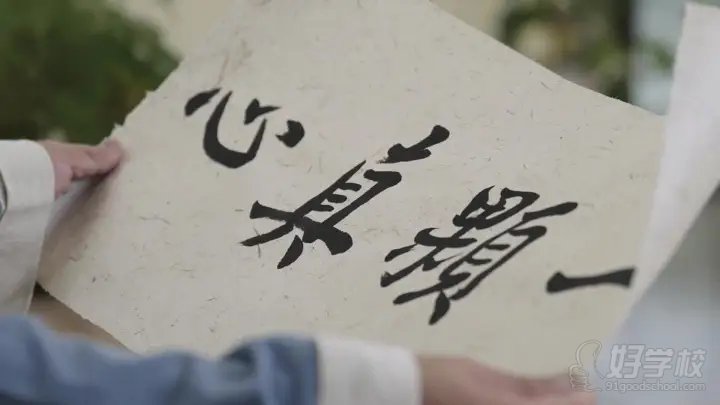 一顆真心
好学校
www.91goodschool.com